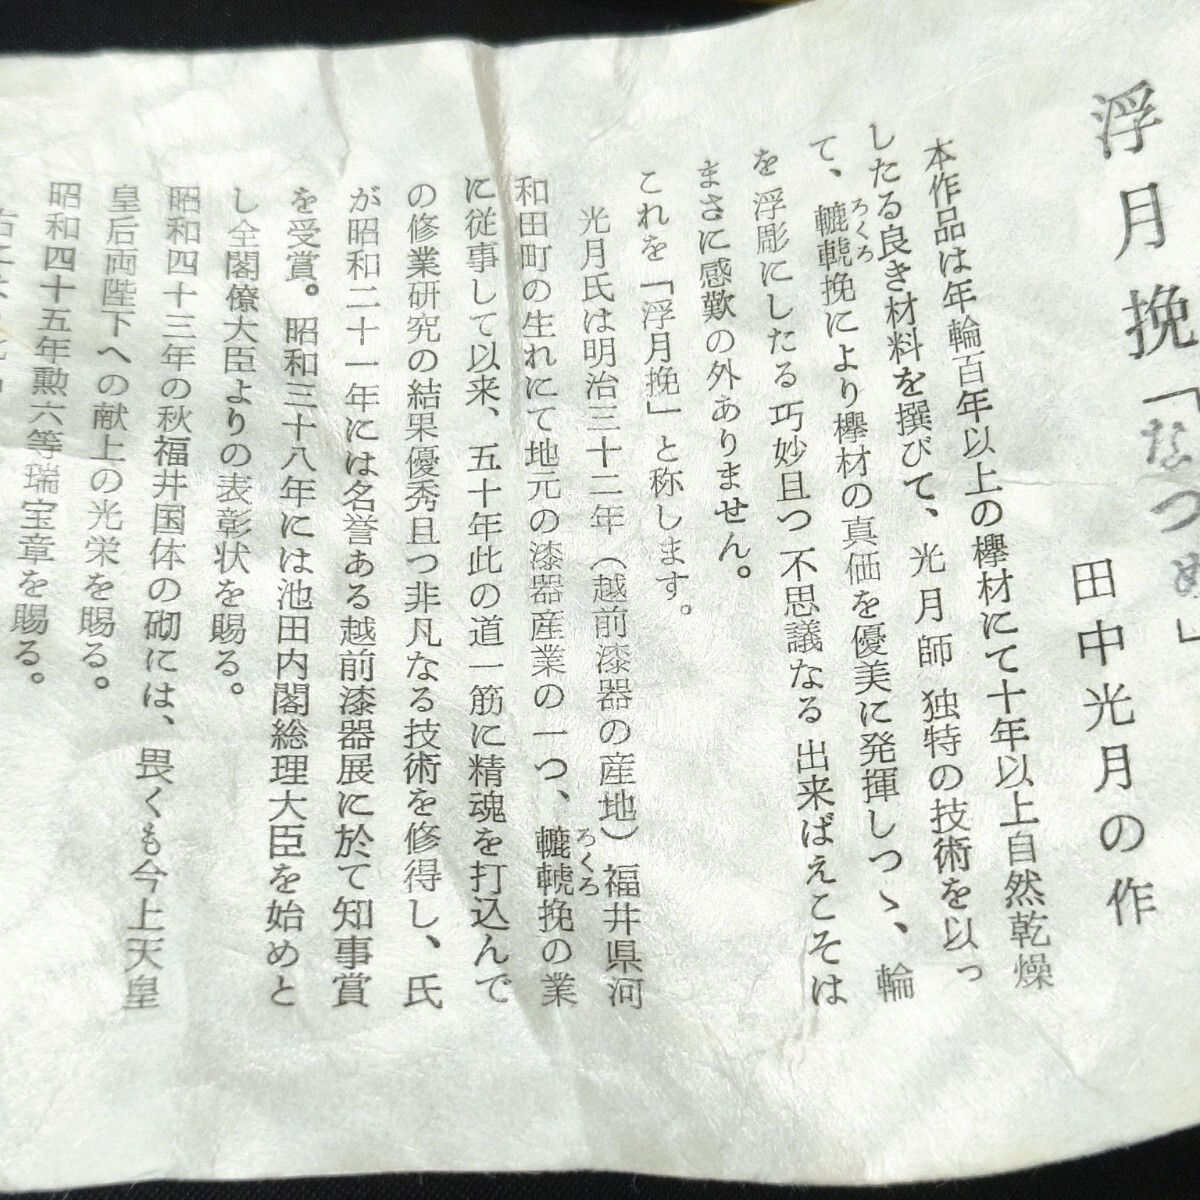 浮月挽「なつめ」
田中光月の作
本作品は年輪百年以上の欅材にて十年以上自然乾燥
したる良き材料を撰びて、光月師独特の技術を以っ
て、轆轤挽により欅材の真価を優美に発揮しつゝ、輪
ろくろ
を浮彫にしたる巧妙且つ不思議なる出来ばえこそは
まさに感歎の外ありません。
これを「浮月挽」と称します。
光月氏は明治三十二年（越前漆器の産地）福井県河
和田町の生れにて地元の漆器産業の一つ、轆轤挽の業
ろくろ
に従事して以来、五十年此の道一筋に精魂を打込んで
の修業研究の結果優秀且つ非凡なる技術を修得し、氏
が昭和二十一年には名誉ある越前漆器展に於て知事賞
を受賞。昭和三十八年には池田内閣総理大臣を始めと
し全閣僚大臣よりの表彰状を賜る。
昭和四十三年の秋福井国体の砌には、畏くも今上天皇
皇后両陛下への献上の光栄を賜る。
昭和四十五年勲六等瑞宝章を賜る。